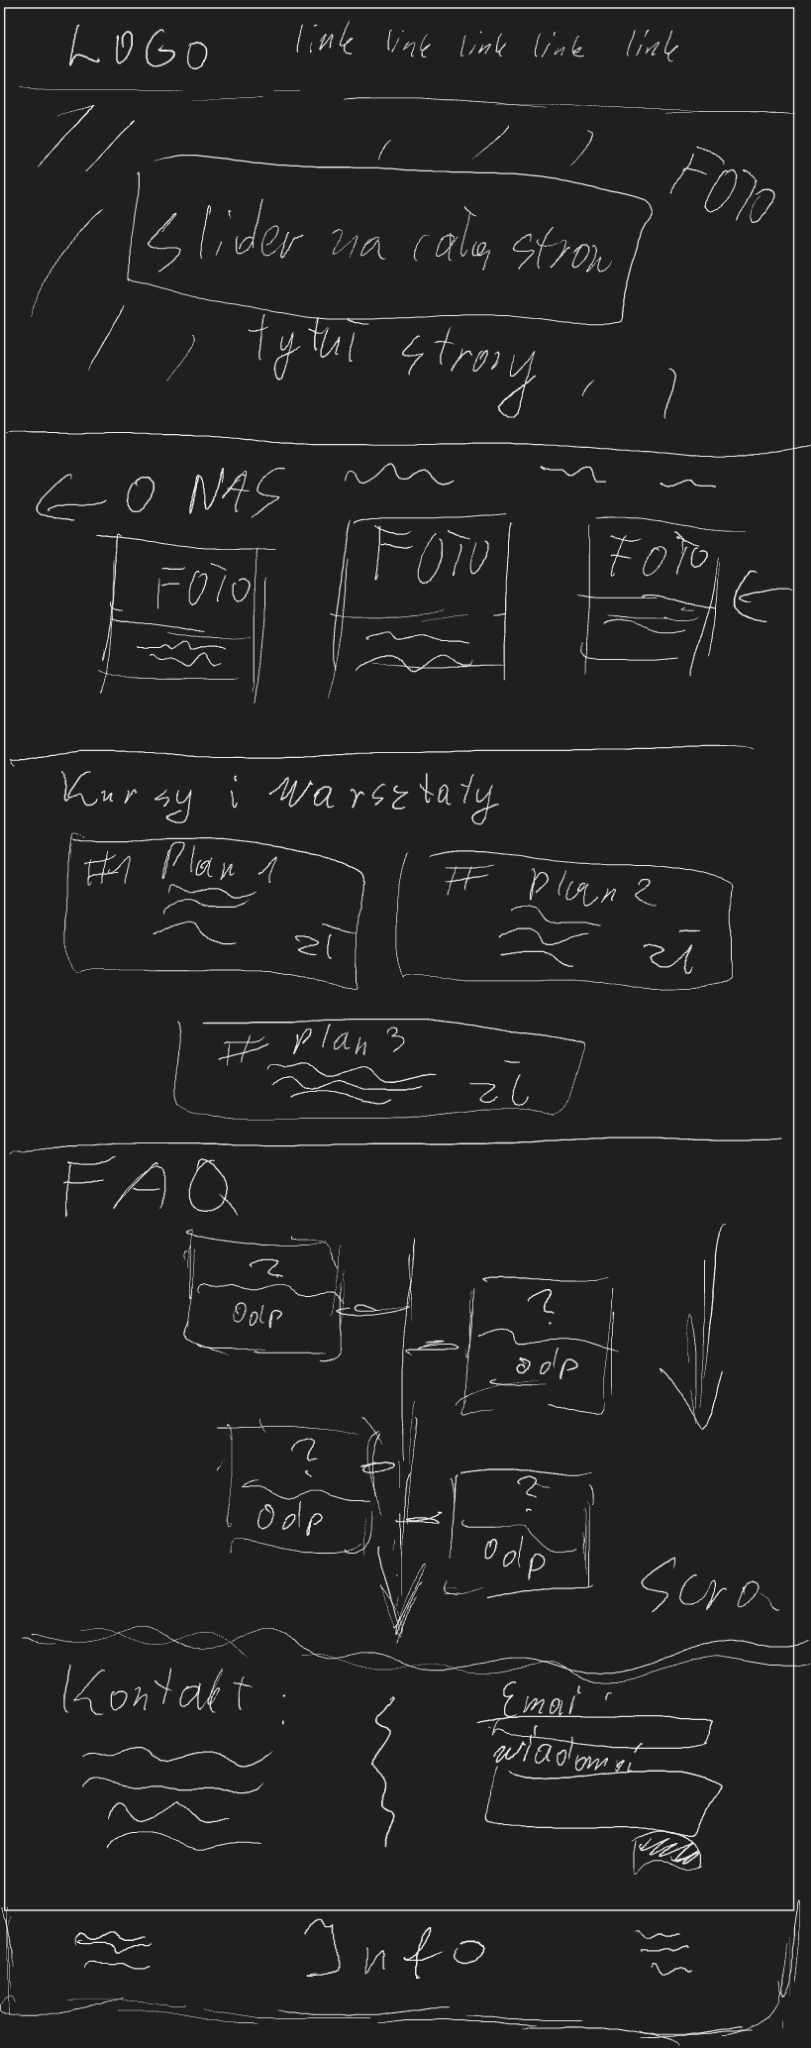 LOGO link link link link link
FOTO
slider na całą stron
tytuł strony
O NAS
FOTO FOTO FOTO
Kursy i warsztaty
#1 Plan 1
zł
# plan 2
zł
# plan 3
zł
FAQ
?
Odp
?
odp
?
Odp
?
Odp
Kontakt:
Emai
Info